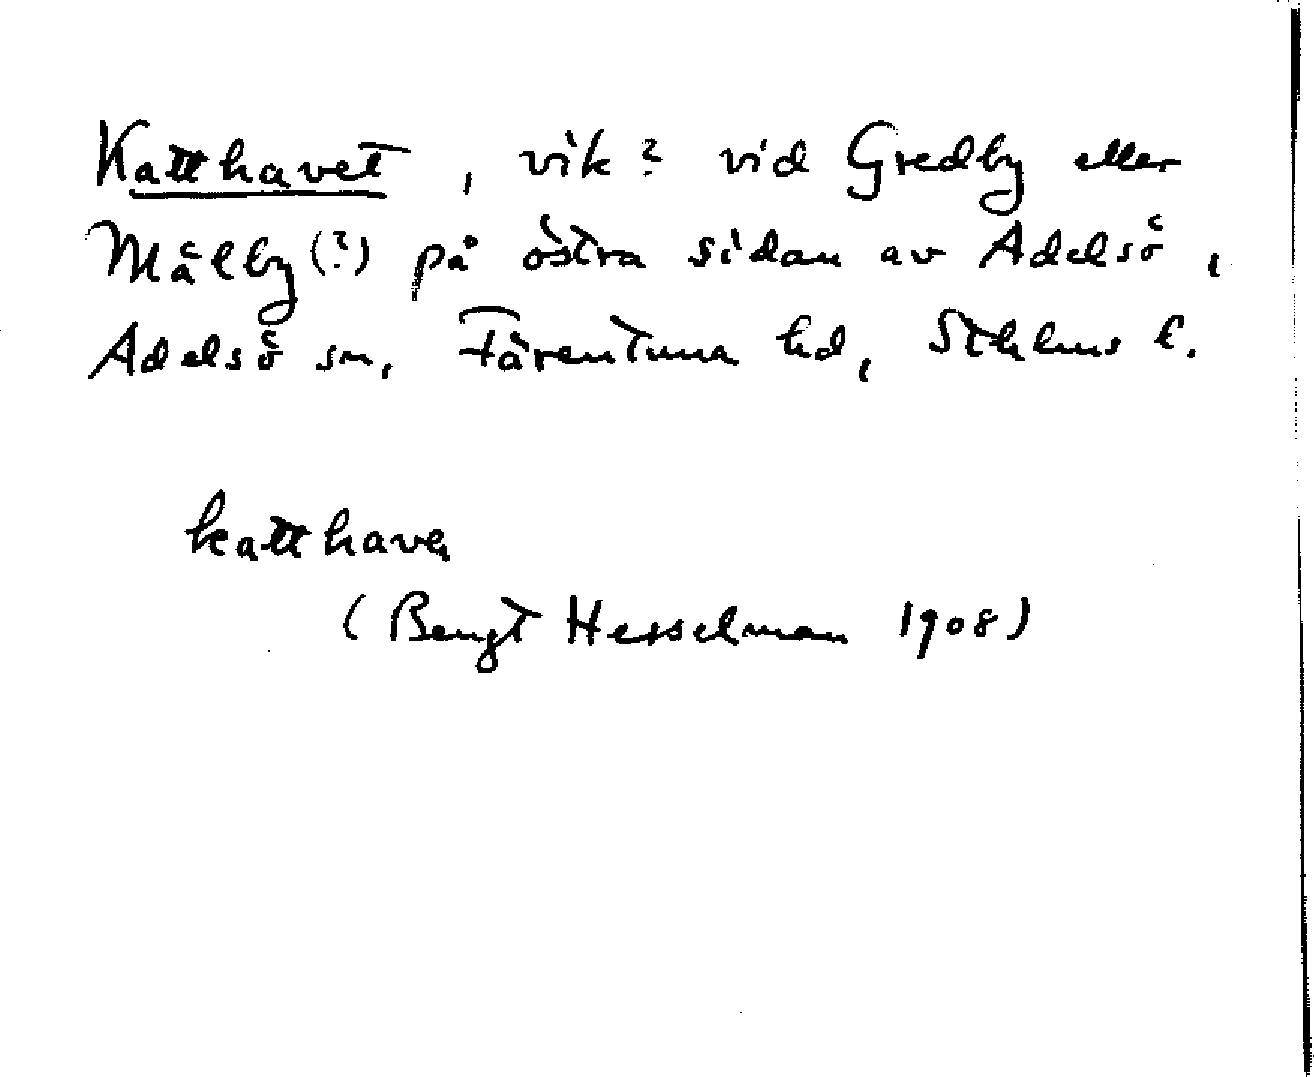 Katthavet, vik? vid Gredby eller
Målby(?) på östra sidan av Adelsö,
Adelsö sn, Färentuna hd, Sthlms l.
katthave
(Bengt Hesselman 1908)